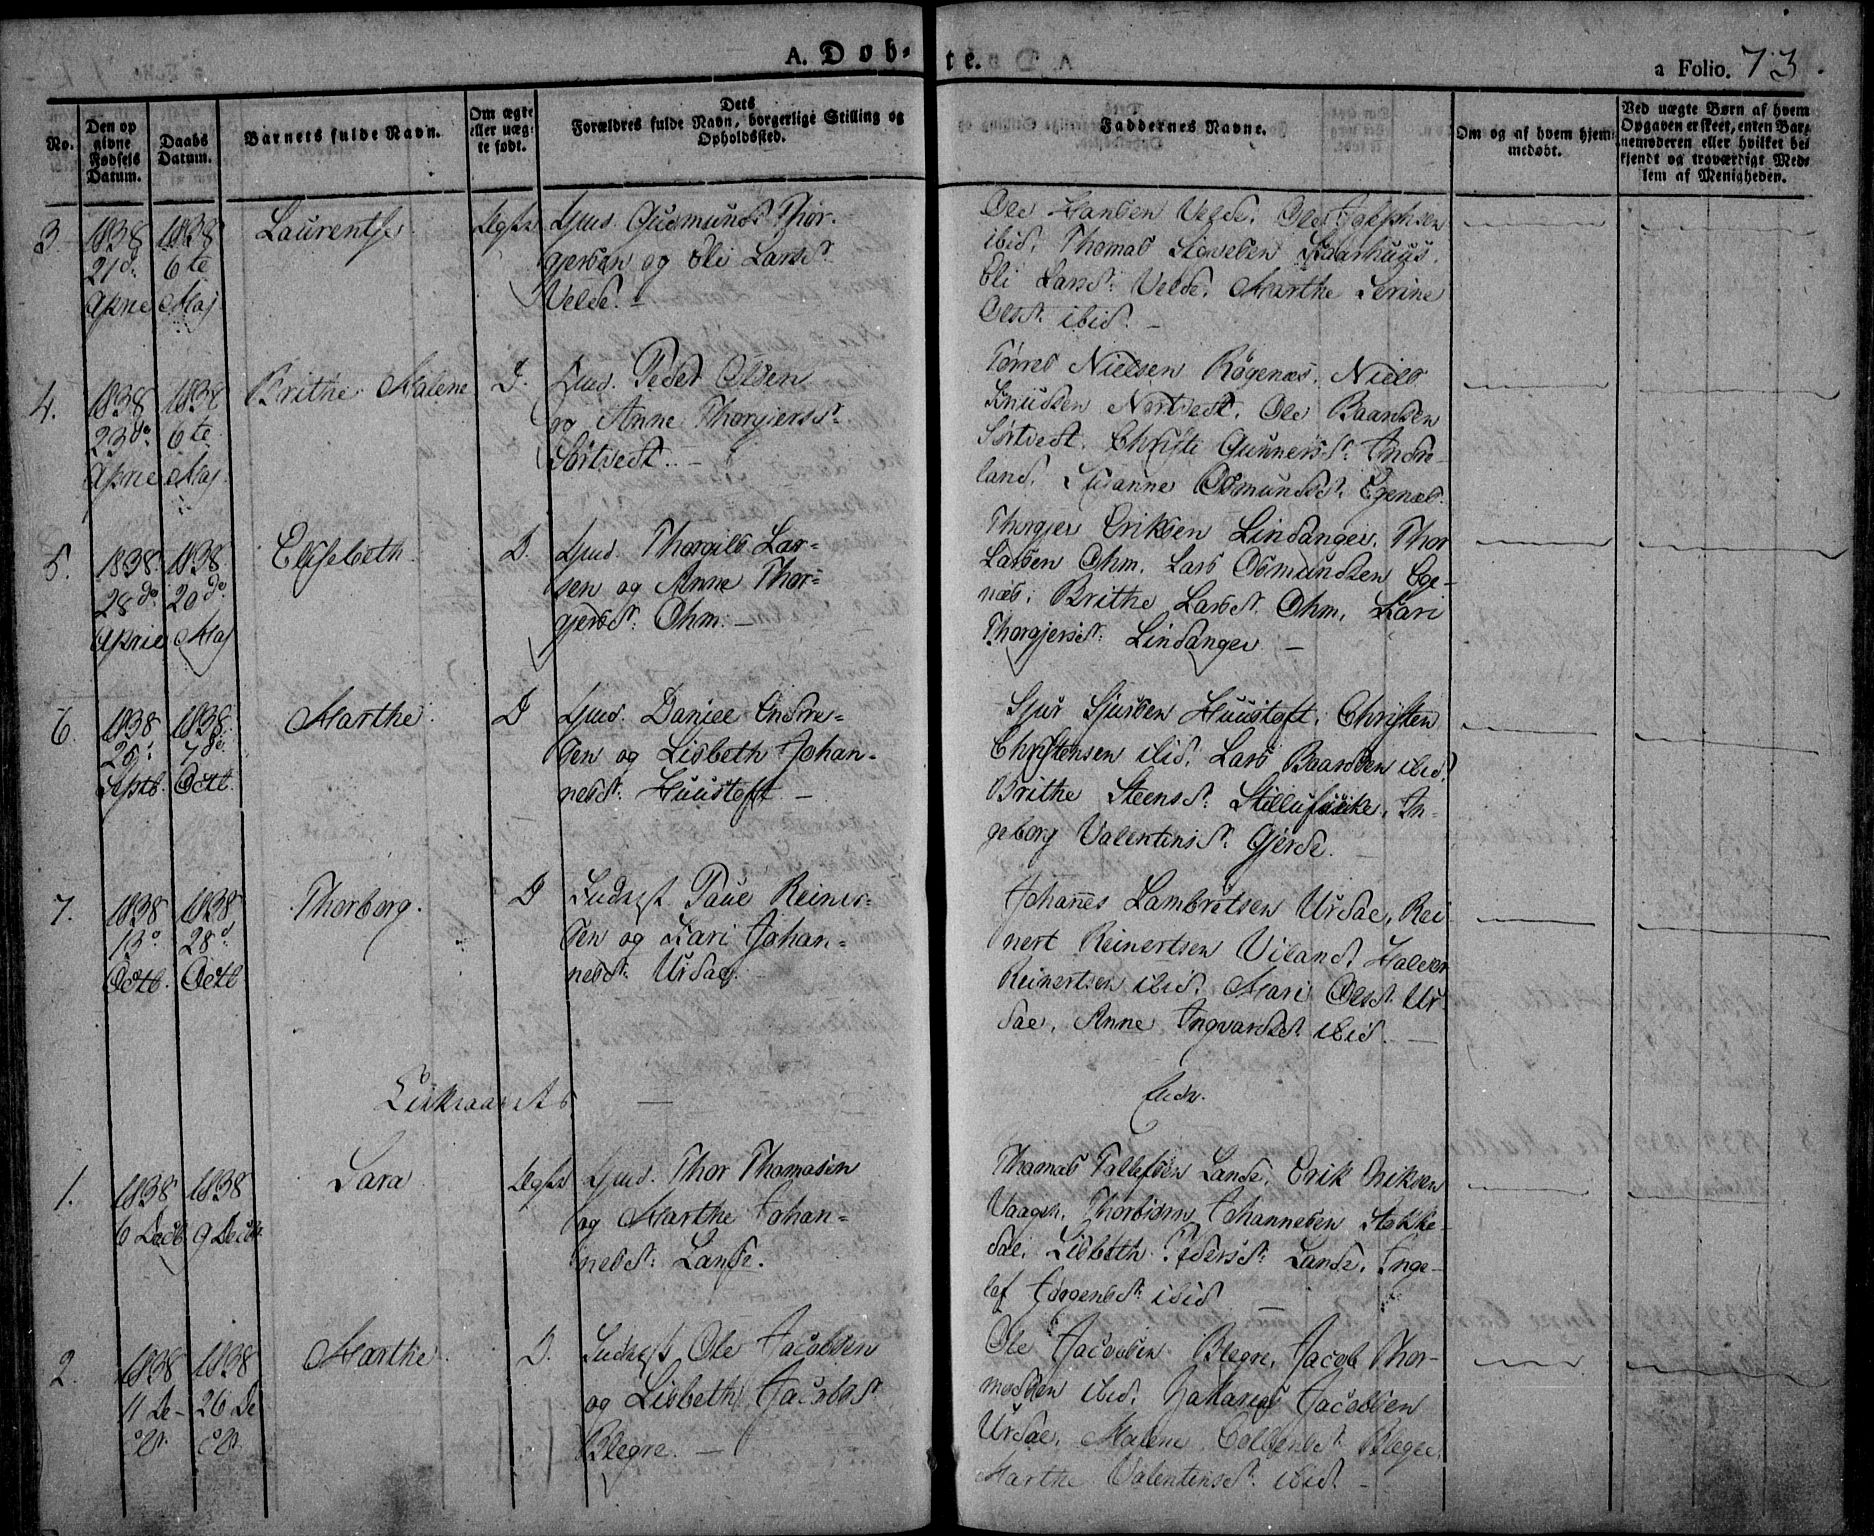 A. Døb-
te.
a Folio. 73.
No.
Den op
givne
Fødsels
Datum.
Daabs
Datum.
Barnets fulde Navn.
Om ægte
eller uæg-
te født.
Dets
Forældres fulde Navn, borgerlige Stilling og
Opholdssted.
Faddernes Navne.
Om og af hvem hjem-
medøbt.
Ved uægte Børn af hvem
Opgaven er skeet, enten Bar-
nemoderen eller hvilket be-
kjendt og troværdigt Med-
lem af Menigheden.
3.
1838
21de
April
1838
6te
Maj
Laurentse
Ægte
Gmd. Gudmund Thor-
gjersen og Eli Larsd.
Velde. –
Ole Hansen Velde. Ole Josephsen
ibid. Thomas
Eli Larsd: Velde. Marthe Serine
Olsd: ibid. –
4.
1838
23de
April
1838
6te
Maj
Brithe Malene
D.
Gmd. Peder Olsen
og Anne Thorgiersd:
Sørtvedt. –
Tørres Nielsen Røgenæs. Niels
Knudsen Nortvedt. Ole Baardsen
Sørtvedt. Christi Gunnersd: Indre-
land. Susanne Osmundsd. Egenæs.
5.
1838
28de
April
1838
20de
Maj
Elisebeth
D.
Gmd. Thorgils Lar-
sen og Anne Thor-
gjersd: Ohm. –
Thorgjer Eriksen Lindanger. Thor
Larsen Ohm. Lars Osmundsen Ege-
næs. Brithe Larsd. Ohm, Kari
Thorgjersd: Lindanger –
6.
1838
Septb.
1838
7de
Octb.
Marthe
D
Gmd. Daniel Endre-
sen og Lisbeth Johan-
nesd: Huustoft –
Sjur Sjursen Huustoft. Christen
Christensen ibid. Lars Baardsen ibid.
Brithe Steensd: In-
geborg Valentinsd: Gjerde.
7.
1838
13de
Octb.
1838
28de
Octb
Thorborg.
D
Inderst Paul Reiner-
sen og Kari Johan-
nesd: Urdal.
Johañes Lambretsen Urdal, Rei-
nert Reinertsen Viland. Halvor
Reinertsen ibid. Mari Olsd. Ur-
dal, Anne Ingvarsd. ibid. –
–
1.
1838
6 Decb.
1838
9 Decbr.
Sara
Ægte
Gmd. Thor Thomasen
og Marthe Johan-
nesd: Lande.
Thomas Tollefsen Lande. Erik Eriksen
Vaagen. Thorbiørn Johannesen Stokke-
dal. Lisbeth Pedersd: Lande. Inge-
lef Jørgensd: ibid –
2.
1838
11 De-
cb.
1838
26 De
cb.
Marthe
D.
Inderst Ole Jacobsen
og Lisbeth Jacobsd.
Blegre. –
Ole Jacobsen Blegre, Jacob Thor-
modsen ibid. Zakarias Jacobsen
Urdal. Malene Blegre.
Marthe Valentinsd: ibid. –